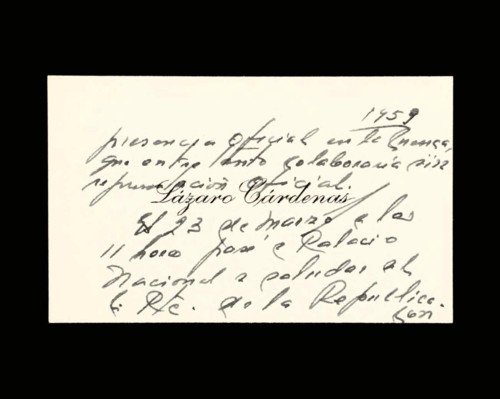 1959
presencia oficial en la Cuenca,
que entre tanto colaboraría sin
representación oficial.
Lázaro Cárdenas
El 23 de marzo a las
11 horas pasé a Palacio
Nacional a saludar al
C. Pte. de la República.